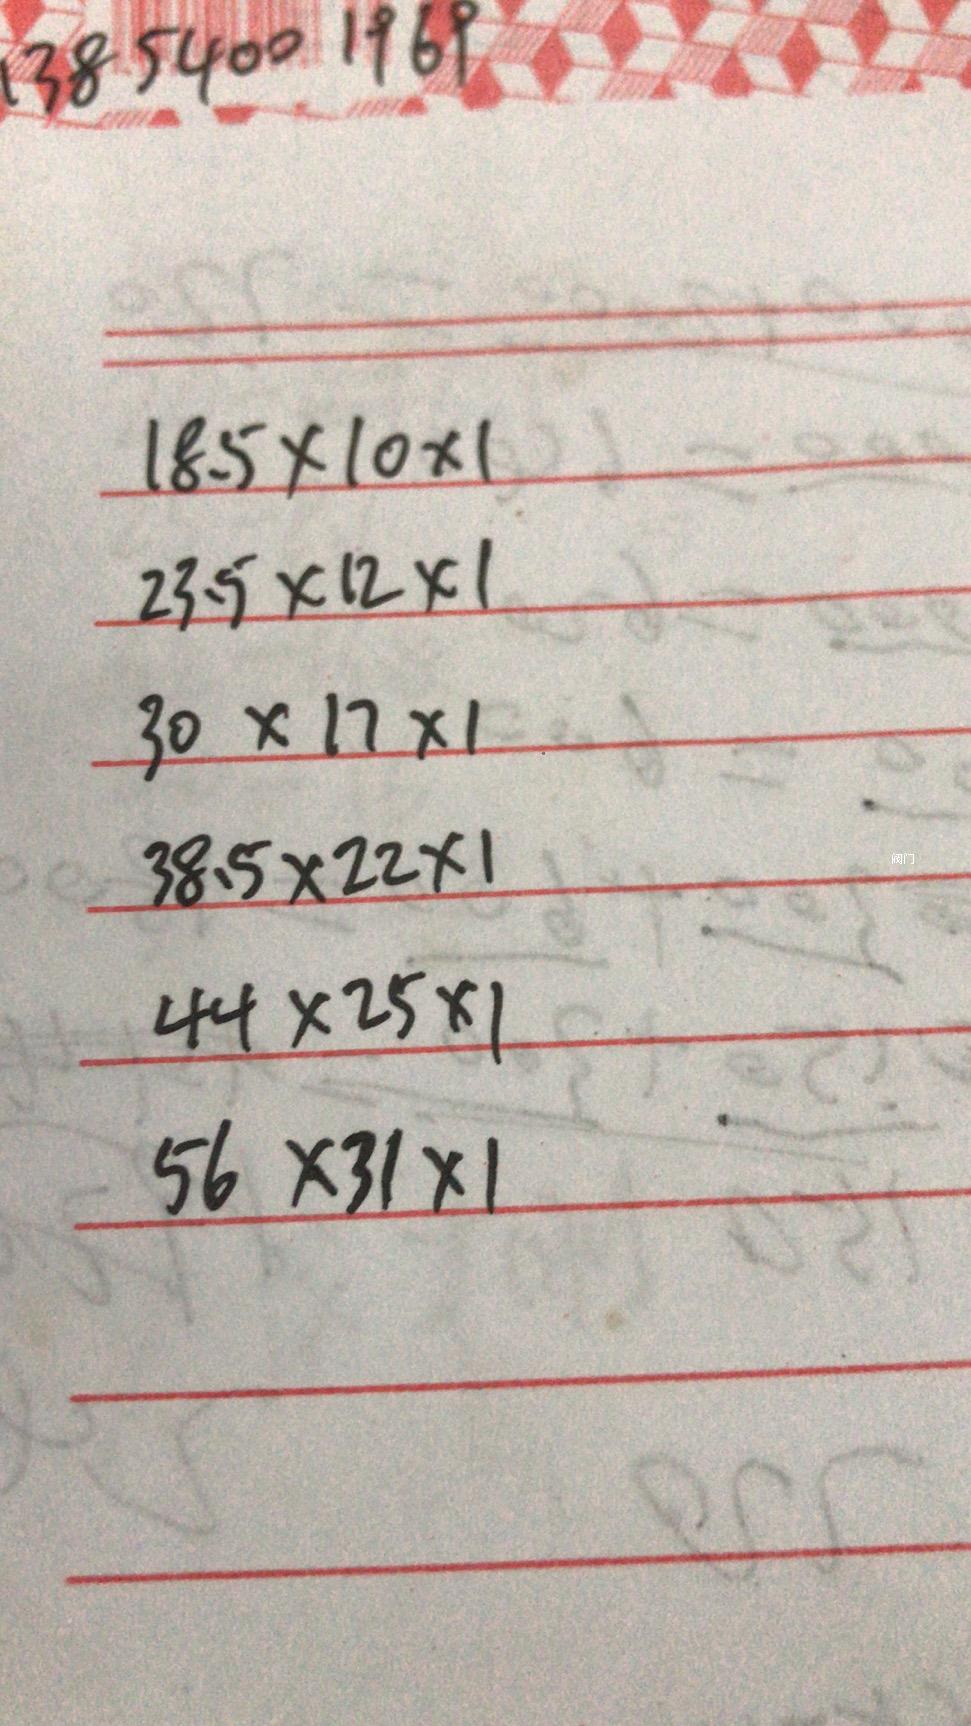 138 5400 1969
18.5×10×1
23.5×12×1
30×17×1
38.5×22×1
阀门
44×25×1
56×31×1